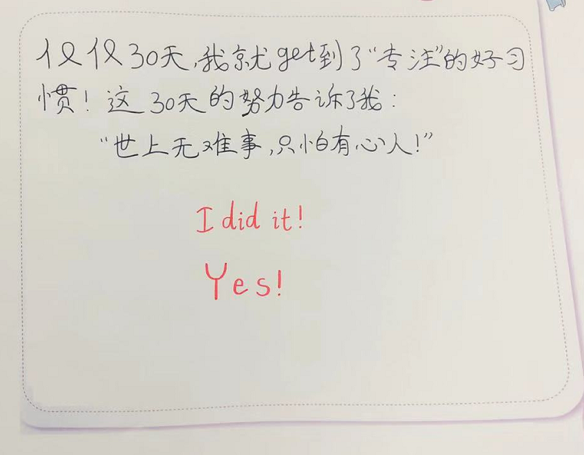 仅仅30天,我就get到了“专注”的好习
惯！这30天的努力告诉了我：
“世上无难事,只怕有心人！”
I did it!
Yes!